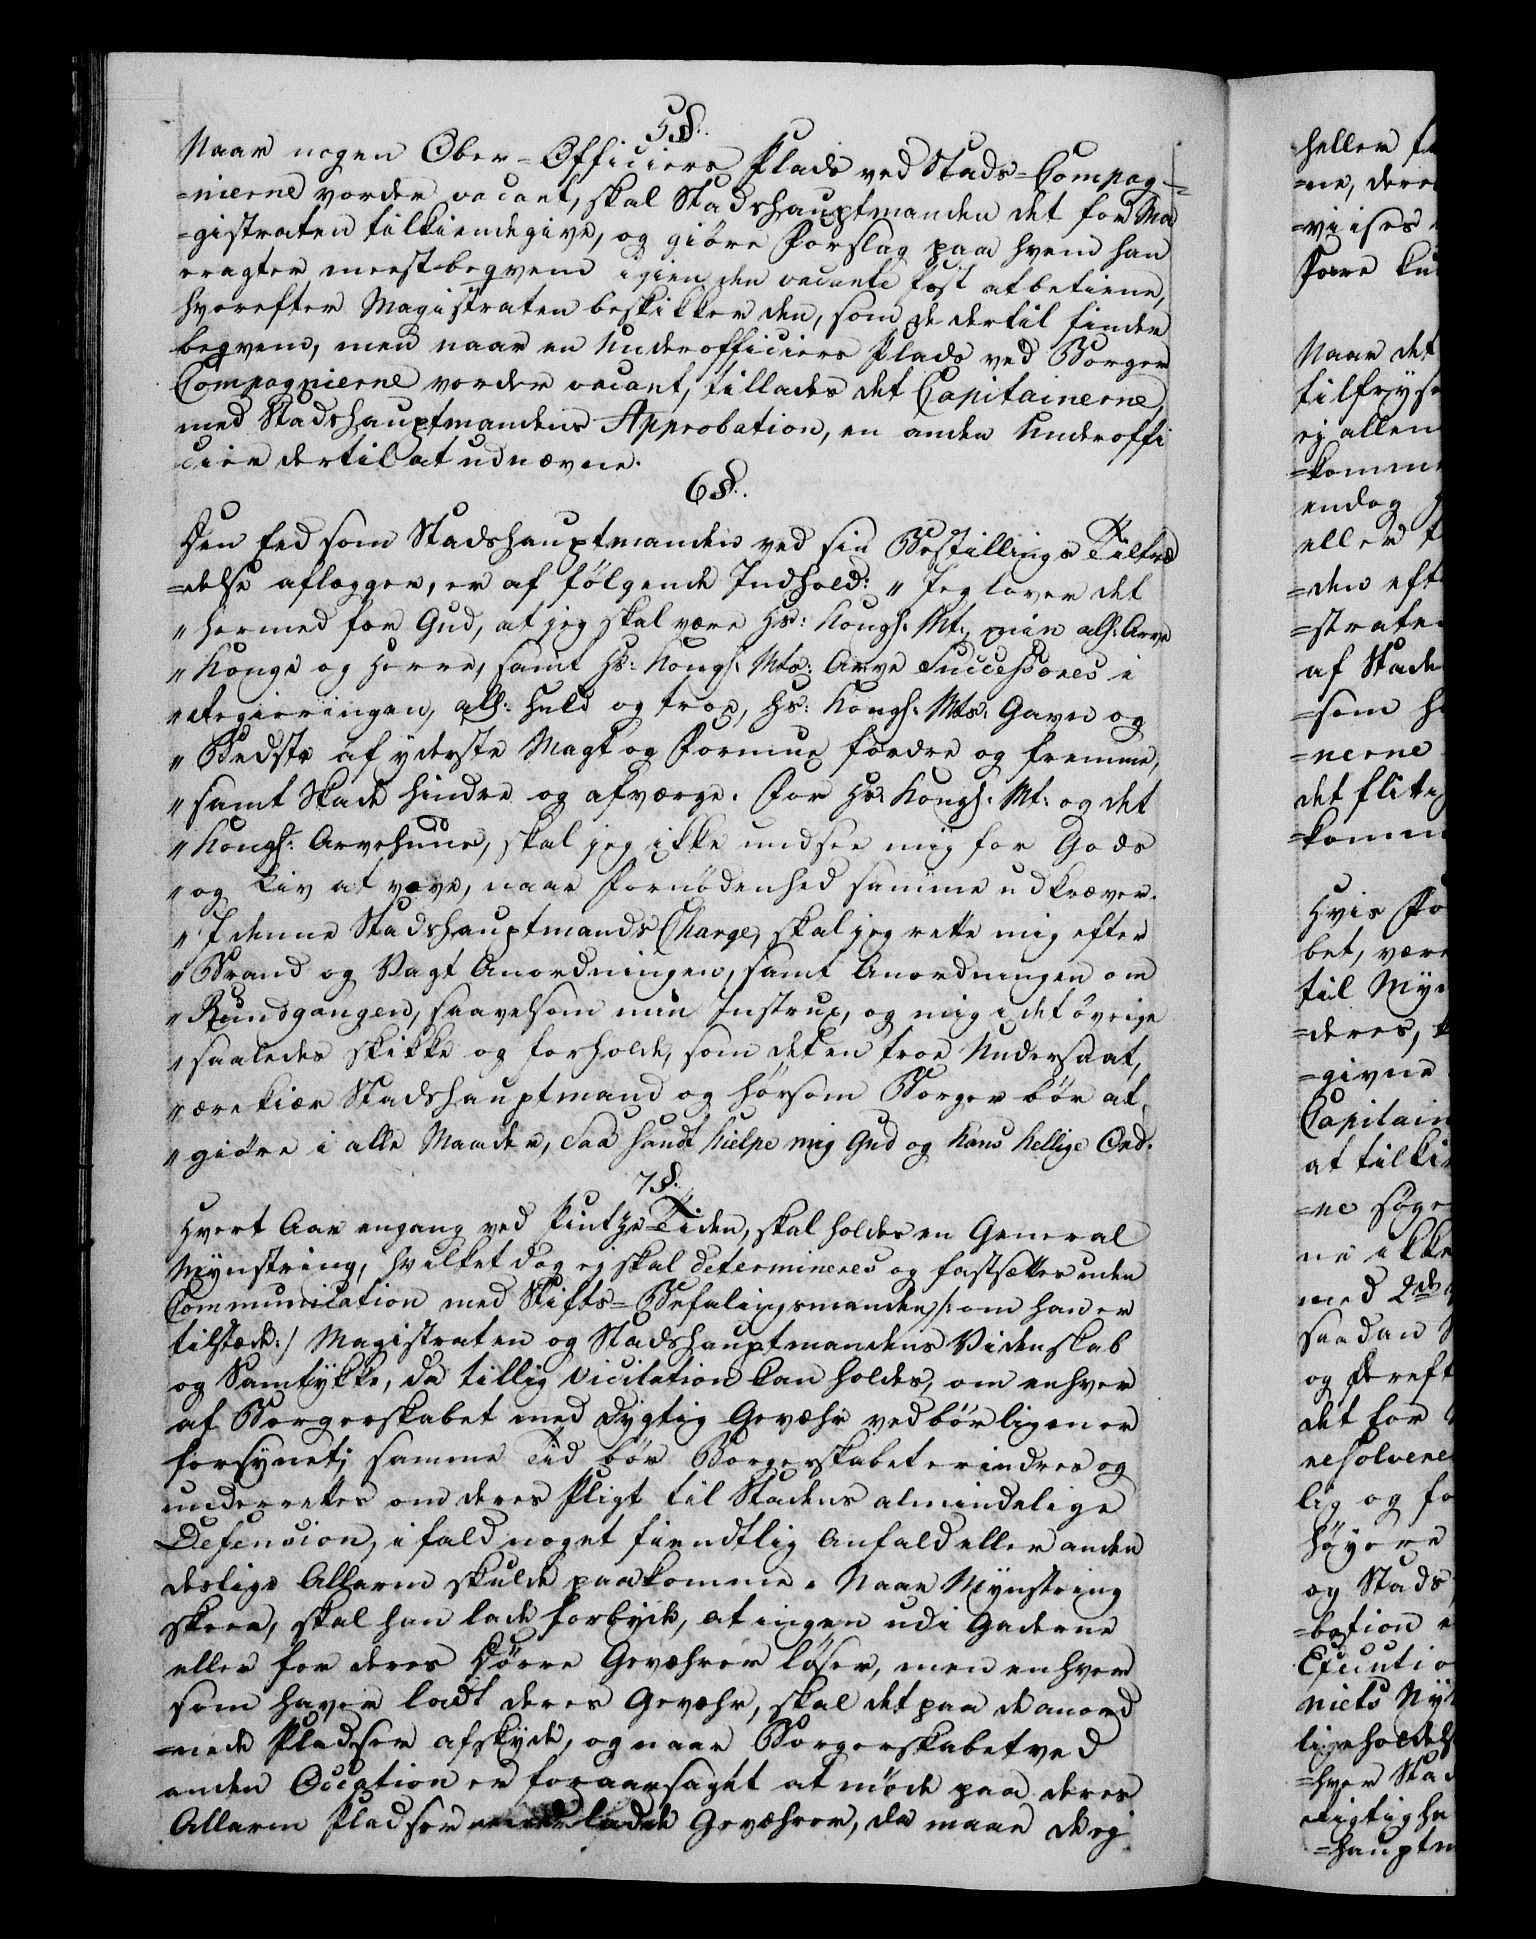 5§.
Naar nogen Ober-Officiers Plads ved Stads-Compag-
=nierne vorder vacant, skal Stadshauptmanden det for Ma
=gistraten tilkiendegive, og giöre Forslag paa hvem han
eragter meest beqvem igien den vacante Post at betiene,
hvorefter Magistraten beskikker den, som de dertil finder
beqvem, men naar en Underofficiers Plads ved Borger
Compagnierne vorder vacant, tillades det Capitainerne,
med Stadshauptmandens Approbation, en anden Underoffi
cier dertil at udnævne.
6§.
Den Eed som Stadshauptmanden ved sin Bestillings Tiltræ
=delse aflegger, er af fölgende Indhold: „ Jeg lover det
„ hermed for Gud, at jeg skal være Hs: Kongl: Mt:, min all: Arve
„ Konge og Herre, samt Hs: Kongl: Mts: Arve Successores i
„ Regieringen, all: huld og troe, Hs: Kongl: Mts: Gavn og
„ Bedste af yderste Magt og Formue fordre og fremme,
„ samt Skade hindre og afværge. For Hs: Kongl: Mt: og det
„ Kongl: Arvehuus, skal jeg ikke undsee mig for Gods
„ og Liv at vove, naar Fornödenhed samme udkræver.
„ I denne Stadshauptmands Charge, skal jeg rette mig efter
„ Brand og Vagt Anordningen, samt Anordningen om
„ Rundgangen, saavelsom min Instrux, og mig i det övrige
„ saaledes skikke og forholde, som det en troe Undersaat,
„ ærekiær Stadshauptmand og hörsom Borger bör at
„ giöre i alle Maader, Saa sandt hielpe mig Gud og hans hellige Ord.
7§.
Hvert Aar engang ved Pintze-Tiden, skal holdes en General
Mynstring, hvilket dog ej skal determineres og fastsættes uden
Communication med Stifts-Befalingsmanden /: om han er
tilstæde :/ Magistraten og Stadshauptmandens Videnskab
og Samtykke, da tillig Vicitation kan holdes, om enhver
af Borgerskabet med dygtig Gevæhr vedbörligen er
forsynet; samme Tid bör Borgerskabet erindres og
underrettes om deres Pligt til Stadens almindelige
Defension, ifald noget fiendtlig Anfald eller anden
deslige Allarm skulde paakomme. Naar Mynstring
skeer, skal han lade forbyde, at ingen udi Gaderne
eller for deres Dörre Gevæhrer löser, men enhver
som haver ladt deres Gevæhr, skal det paa de anord
=nede Pladser afskyde, og naar Borgerskabet ved
anden Occation er foraarsaget at möde paa deres
Allarm Pladser med ladde Gevæhrer, da maae de ej
heller
=ne, dere
=viises
Naar det
ej allen
=komme
endog
eller
=den eft
=strate
af Stade
=som
=nerne
det flitig
=komm
Hvis Fo
bet, være
til Myn
=deres,
=givne
Capitain
at tilki
=ne söge
ne ikke
med 2de
saadan
og dereft
det for
resolvere
lig og fo
höyere
og Stads
=bation
Executio
=hver Stad
=hauptm